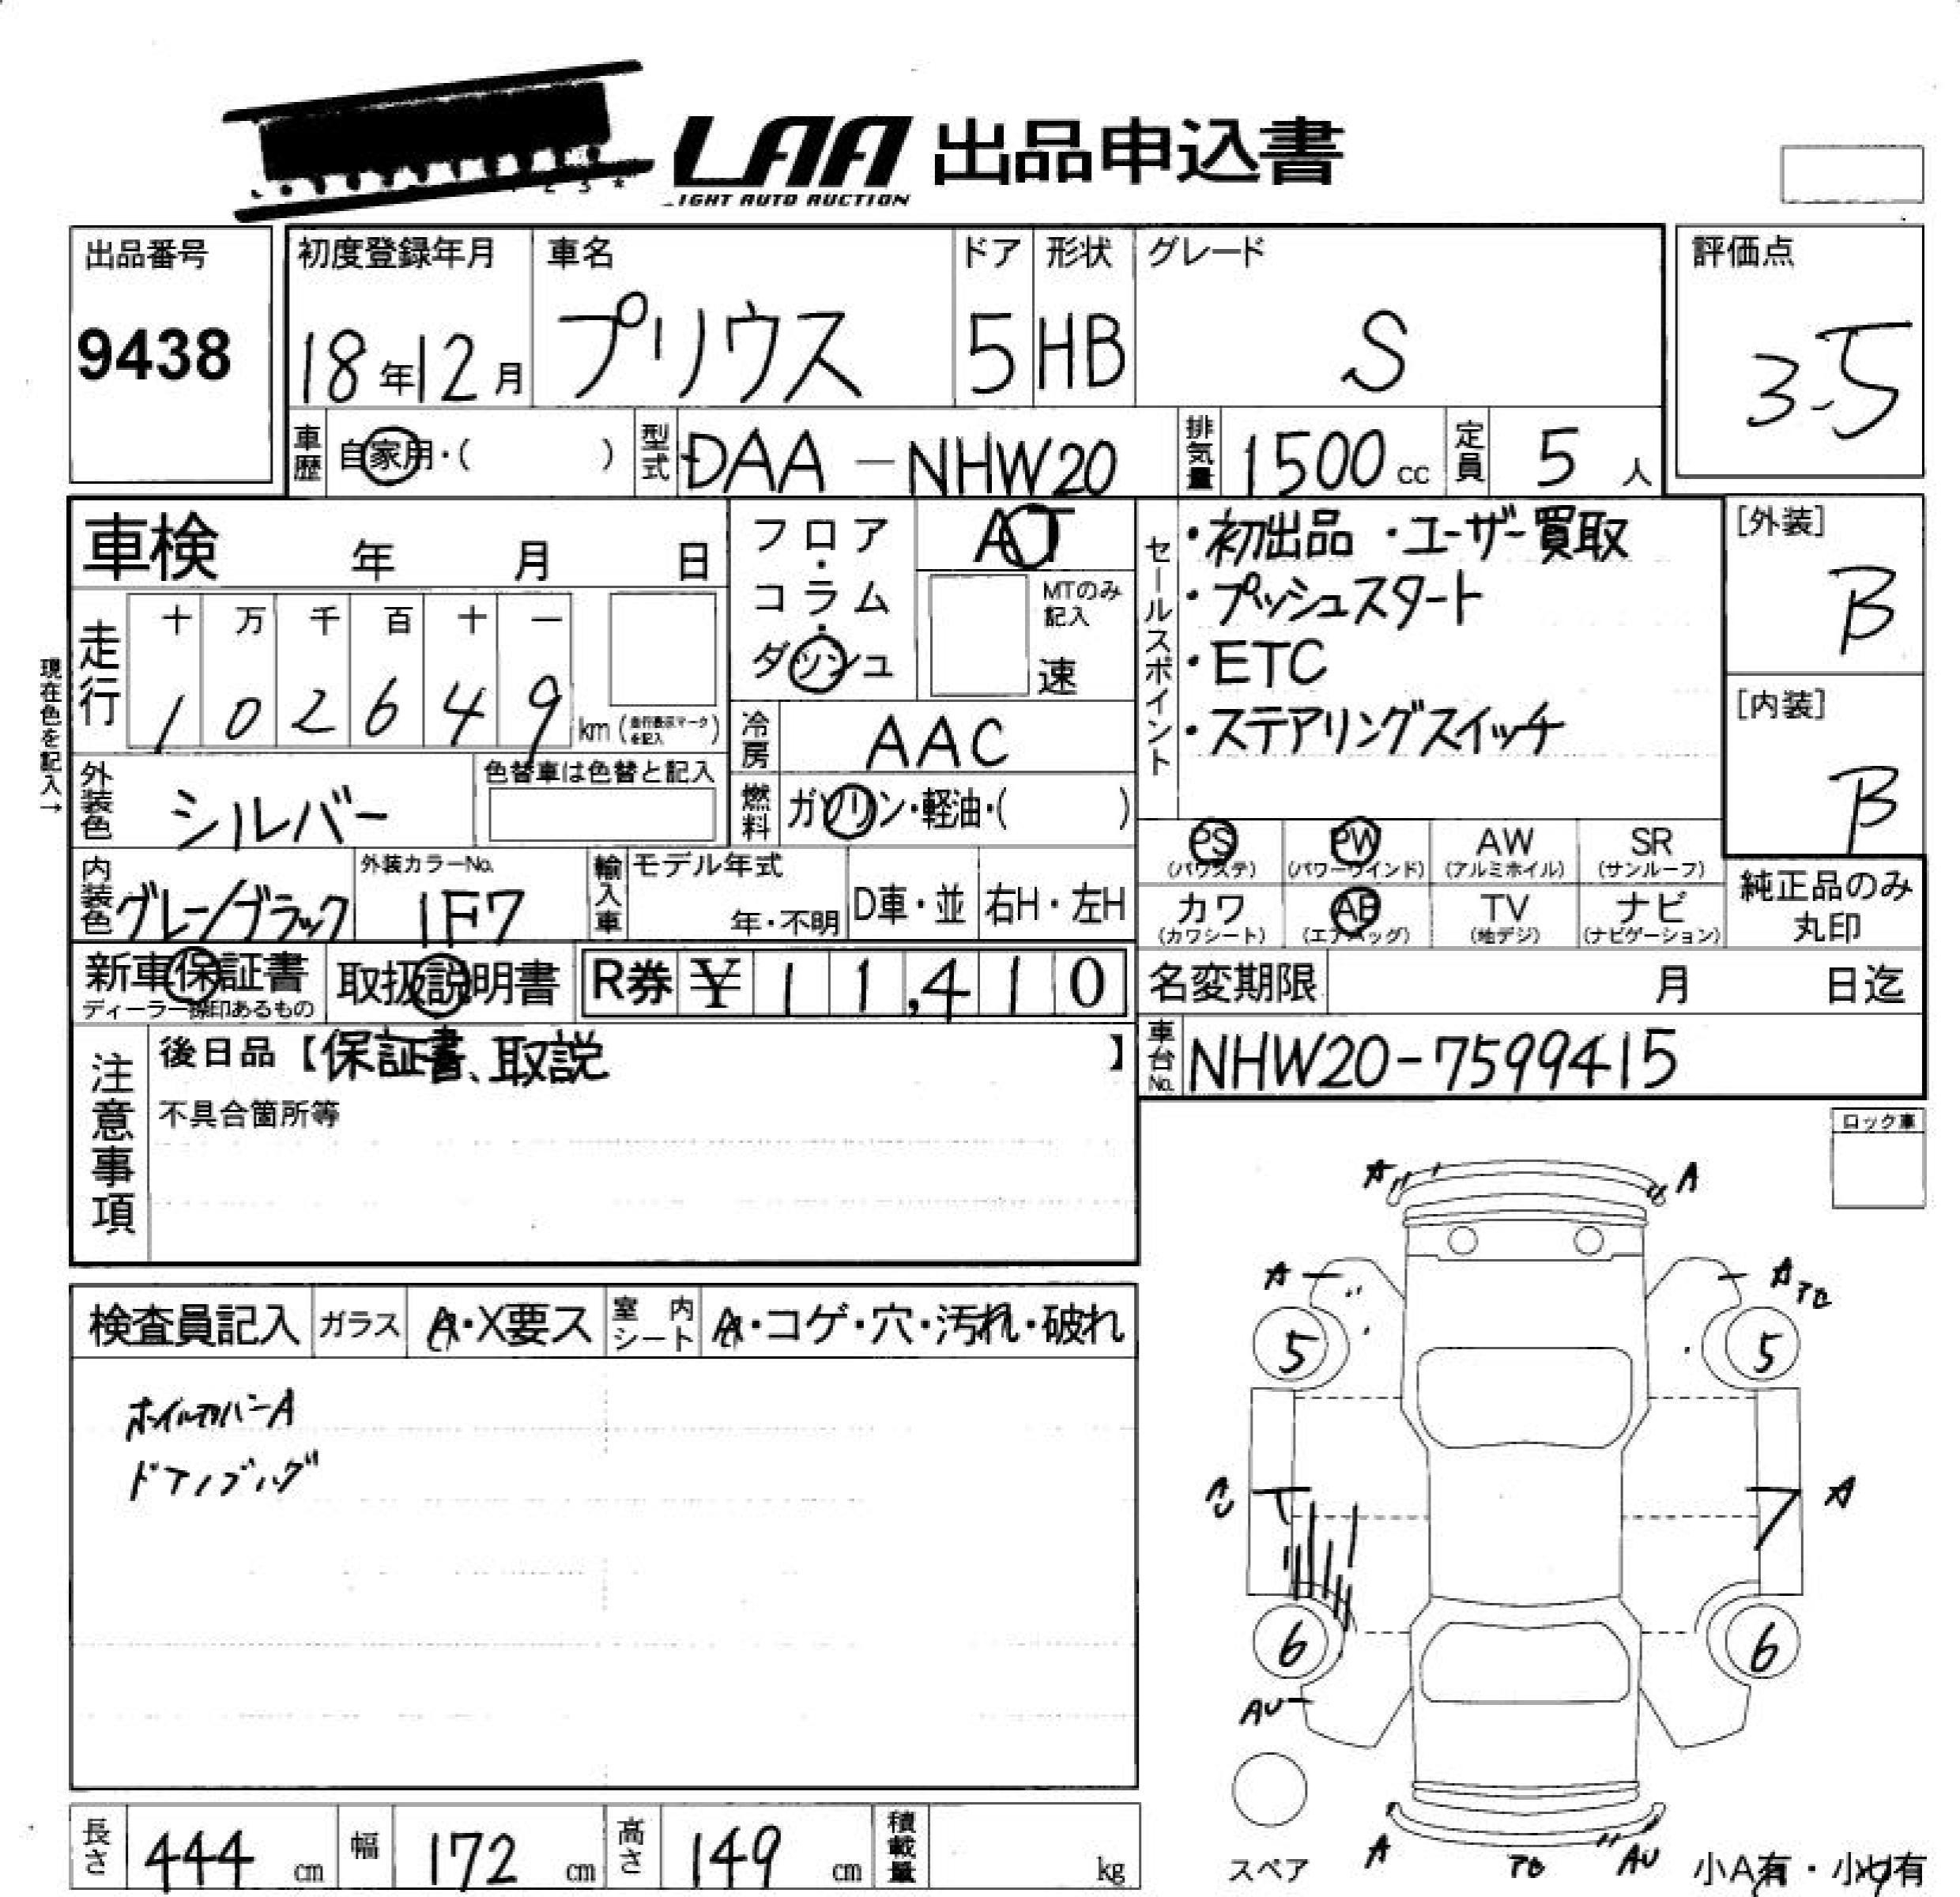 LAA 出品申込書
IGHT AUTO AUCTION
出品番号
9438
初度登録年月
18年12月
車名
プリウス
ドア
5
形状
HB
グレード
S
評価点
3.5
車歴 自家用・( )
型式 DAA-NHW20
排気量 1500 cc
定員 5 人
車検 年 月 日
フロア・コラム・ダッシュ
AT
MTのみ記入
速
走行
十 万 千 百 十 一
1 0 2 6 4 9 km (走行表示マークを記入)
現在色を記入→
冷房 AAC
燃料 ガソリン・軽油・( )
セールスポイント
・初出品 ・ユーザー買取
・プッシュスタート
・ETC
・ステアリングスイッチ
[外装]
B
[内装]
B
外装色 シルバー
色替車は色替と記入
内装色 グレー/ブラック
外装カラーNo.
1F7
輸入車 モデル年式
年・不明
D車・並
右H・左H
PS (パワステ)
PW (パワーウインド)
AW (アルミホイル)
SR (サンルーフ)
カワ (カワシート)
AB (エアバッグ)
TV (地デジ)
ナビ (ナビゲーション)
純正品のみ丸印
新車保証書
ディーラー捺印あるもの
取扱説明書
R券 ¥11,410
名変期限 月 日迄
車台No. NHW20-7599415
注意事項
後日品【保証書、取説】
不具合箇所等
ロック車
検査員記入
ガラス A・X要ス
室内シート A・コゲ・穴・汚れ・破れ
ホイルカバーA
A
A
A
A
5
5
A
6
6
AU
スペア
A
AU
小A有・小U有
長さ 444 cm
幅 172 cm
高さ 149 cm
積載量 kg